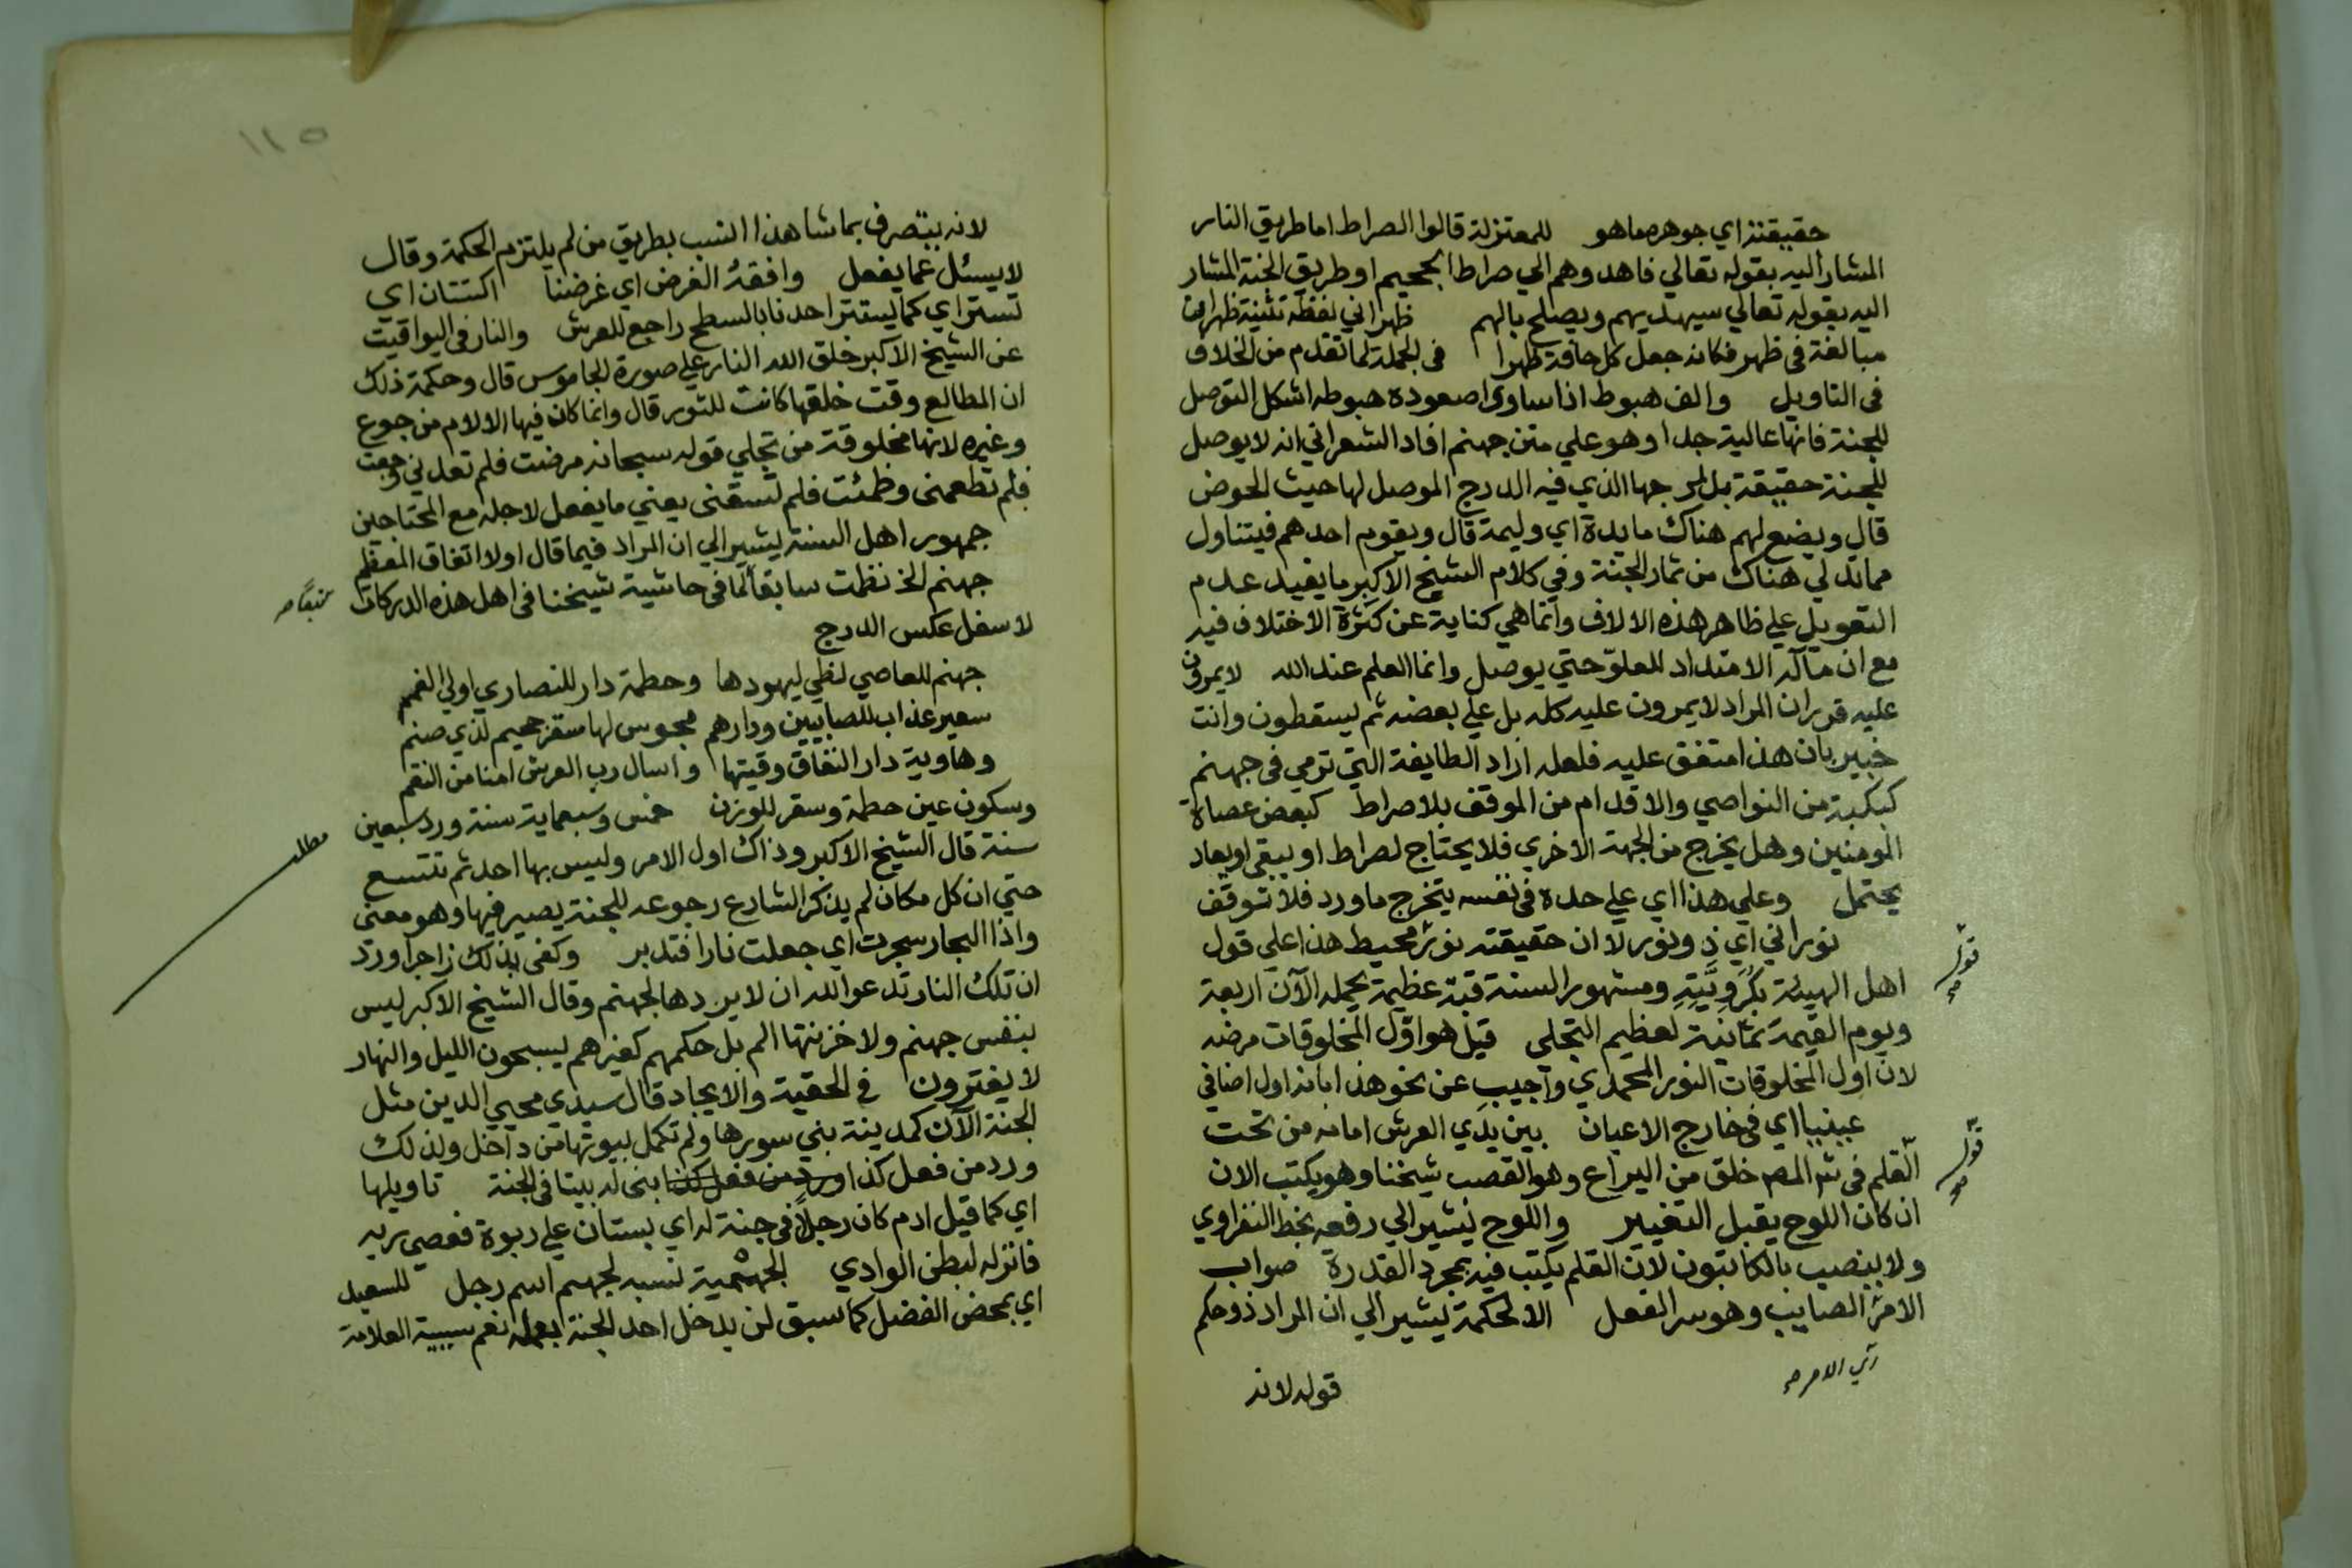 حقيقته اي جوهره ما هو للمعتزلة قالوا الصراط اما طريق النار
المشار اليه بقوله تعالي فاهدوهم الي صراط الجحيم او طريق الجنة المشار
اليه بقوله تعالي سيهديهم ويصلح بالهم ظهراني لفظه تثنية ظهران
مبالغة في ظهر فكانه جعل كل حافة ظهرا في الجملة لما تقدم من الخلاف
في التاويل والف هبوط اذا ساوي صعوده هبوطه اشكل التوصل
للجنة فانها عالية جدا وهو علي متن جهنم افاد الشعراني انه لا يوصل
للجنة حقيقة بل لمرجها الذي فيه الدرج الموصل لها حيث الحوض
قال ويضع لهم هناك مايدة اي وليمة قال ويقوم احدهم فيتناول
مما تدلي هناك من ثمار الجنة وفي كلام الشيخ الاكبر ما يفيد عدم
التعويل علي ظاهر هذه الالاف وانما هي كناية عن كثرة الاختلاف فيه
مع ان مآله الامتداد للعلو حتي يوصل وانما العلم عند الله لا يمرون
عليه قرر ان المراد لا يمرون عليه كله بل علي بعضه ثم يسقطون وانت
خبير بان هذا متفق عليه فلعله اراد الطايفة التي ترمي في جهنم
كبكبة من النواصي والاقدام من الموقف بلا صراط كبعض عصاة
المومنين وهل يخرج من الجهة الاخري فلا يحتاج لصراط او يبقي او يعاد
يحتمل وعلي هذا اي علي حدة في نفسه يتخرج ما ورد فلا توقف
نوراني اي ذو نور لا ان حقيقته نور محيط هذا علي قول
اهل الهيئة بكرويته ومشهور السنة قبة عظيمة يحمله الآن اربعة
ويوم القيمة ثمانية لعظيم التجلي قيل هو اول المخلوقات مرضه
لان اول المخلوقات النور المحمدي واجيب عن نحو هذا بانه اول اضافي
عينيا اي في خارج الاعيان بين يدي العرش امامه من تحت
القلم في شر المص خلق من اليراع وهو القصب شيخنا وهو يكتب الان
ان كان اللوح يقبل التغيير واللوح يشير الي رفعه بخط النفراوي
ولا ينصب بالكاتبون لان القلم يكتب فيه بمجرد القدرة صواب
الامر الصايب وهو سر الفعل الا لحكمة يشير الي ان المراد ذو حكم
قوله
قوله
اي الامر صح
قوله لانه
١١٥
لانه يتصرف بما شا هذا انسب بطريق من لم يلتزم الحكمة وقال
لا يسئل عما يفعل وافقه الغرض اي غرضنا اكتتان اي
تستر اي كما يستتر احدنا بالسطح راجع للعرش والنار في اليواقيت
عن الشيخ الاكبر خلق الله النار علي صورة الجاموس قال وحكمة ذلك
ان المطالع وقت خلقها كانت للثور قال وانما كان فيها الالام من جوع
وغيره لانها مخلوقة من تجلي قوله سبحانه مرضت فلم تعدني وجعت
فلم تطعمني وظمئت فلم تسقني يعني ما يفعل لاجله مع المحتاجين
جمهور اهل السنة يشير الي ان المراد فيما قال اولا اتفاق المعظم
جهنم الخ نظمت سابقا لما في حاشية شيخنا في اهل هذه الدركات
لاسفل عكس الدرج
جهنم للعاصي لظي ليهودها وحطمة دار للنصاري اولي الغمم
سعير عذاب للصابيين ودارهم مجوس لها سقر جحيم لذي صنم
وهاوية دار النفاق وقيتها واسال رب العرش امنا من النقم
وسكون عين حطمة وسقر للوزن خمس وسبعماية سنة ورد سبعين
سنة قال الشيخ الاكبر وذاك اول الامر وليس بها احد ثم تتسع
حتي ان كل مكان لم يذكر الشارع رجوعه للجنة يصير فيها وهو معني
واذا البحار سجرت اي جعلت نارا فتدبر وكفي بذلك زاجرا ورد
ان تلك النار تدعو الله ان لا يردها لجهنم وقال الشيخ الاكبر ليس
بنفس جهنم ولا خزنتها الم بل حكمهم كغيرهم يسبحون الليل والنهار
لا يفترون في الحقية والايجاد قال سيدي محيي الدين مثل
الجنة الآن كمدينة بني سورها ولم تكمل بيوتها من داخل ولذلك
ورد من فعل كذا ورد من فعل كذا بني له بيتا في الجنة تاويلها
اي كما قيل ادم كان رجلا في جنة له اي بستان علي ربوة فعصي ربه
فانزله لبطن الوادي الجهمية نسبه لجهم اسم رجل للسعيد
اي بمحض الفضل كما سبق لن يدخل احد الجنة بعمله نعم سببية العلامة
مطلب